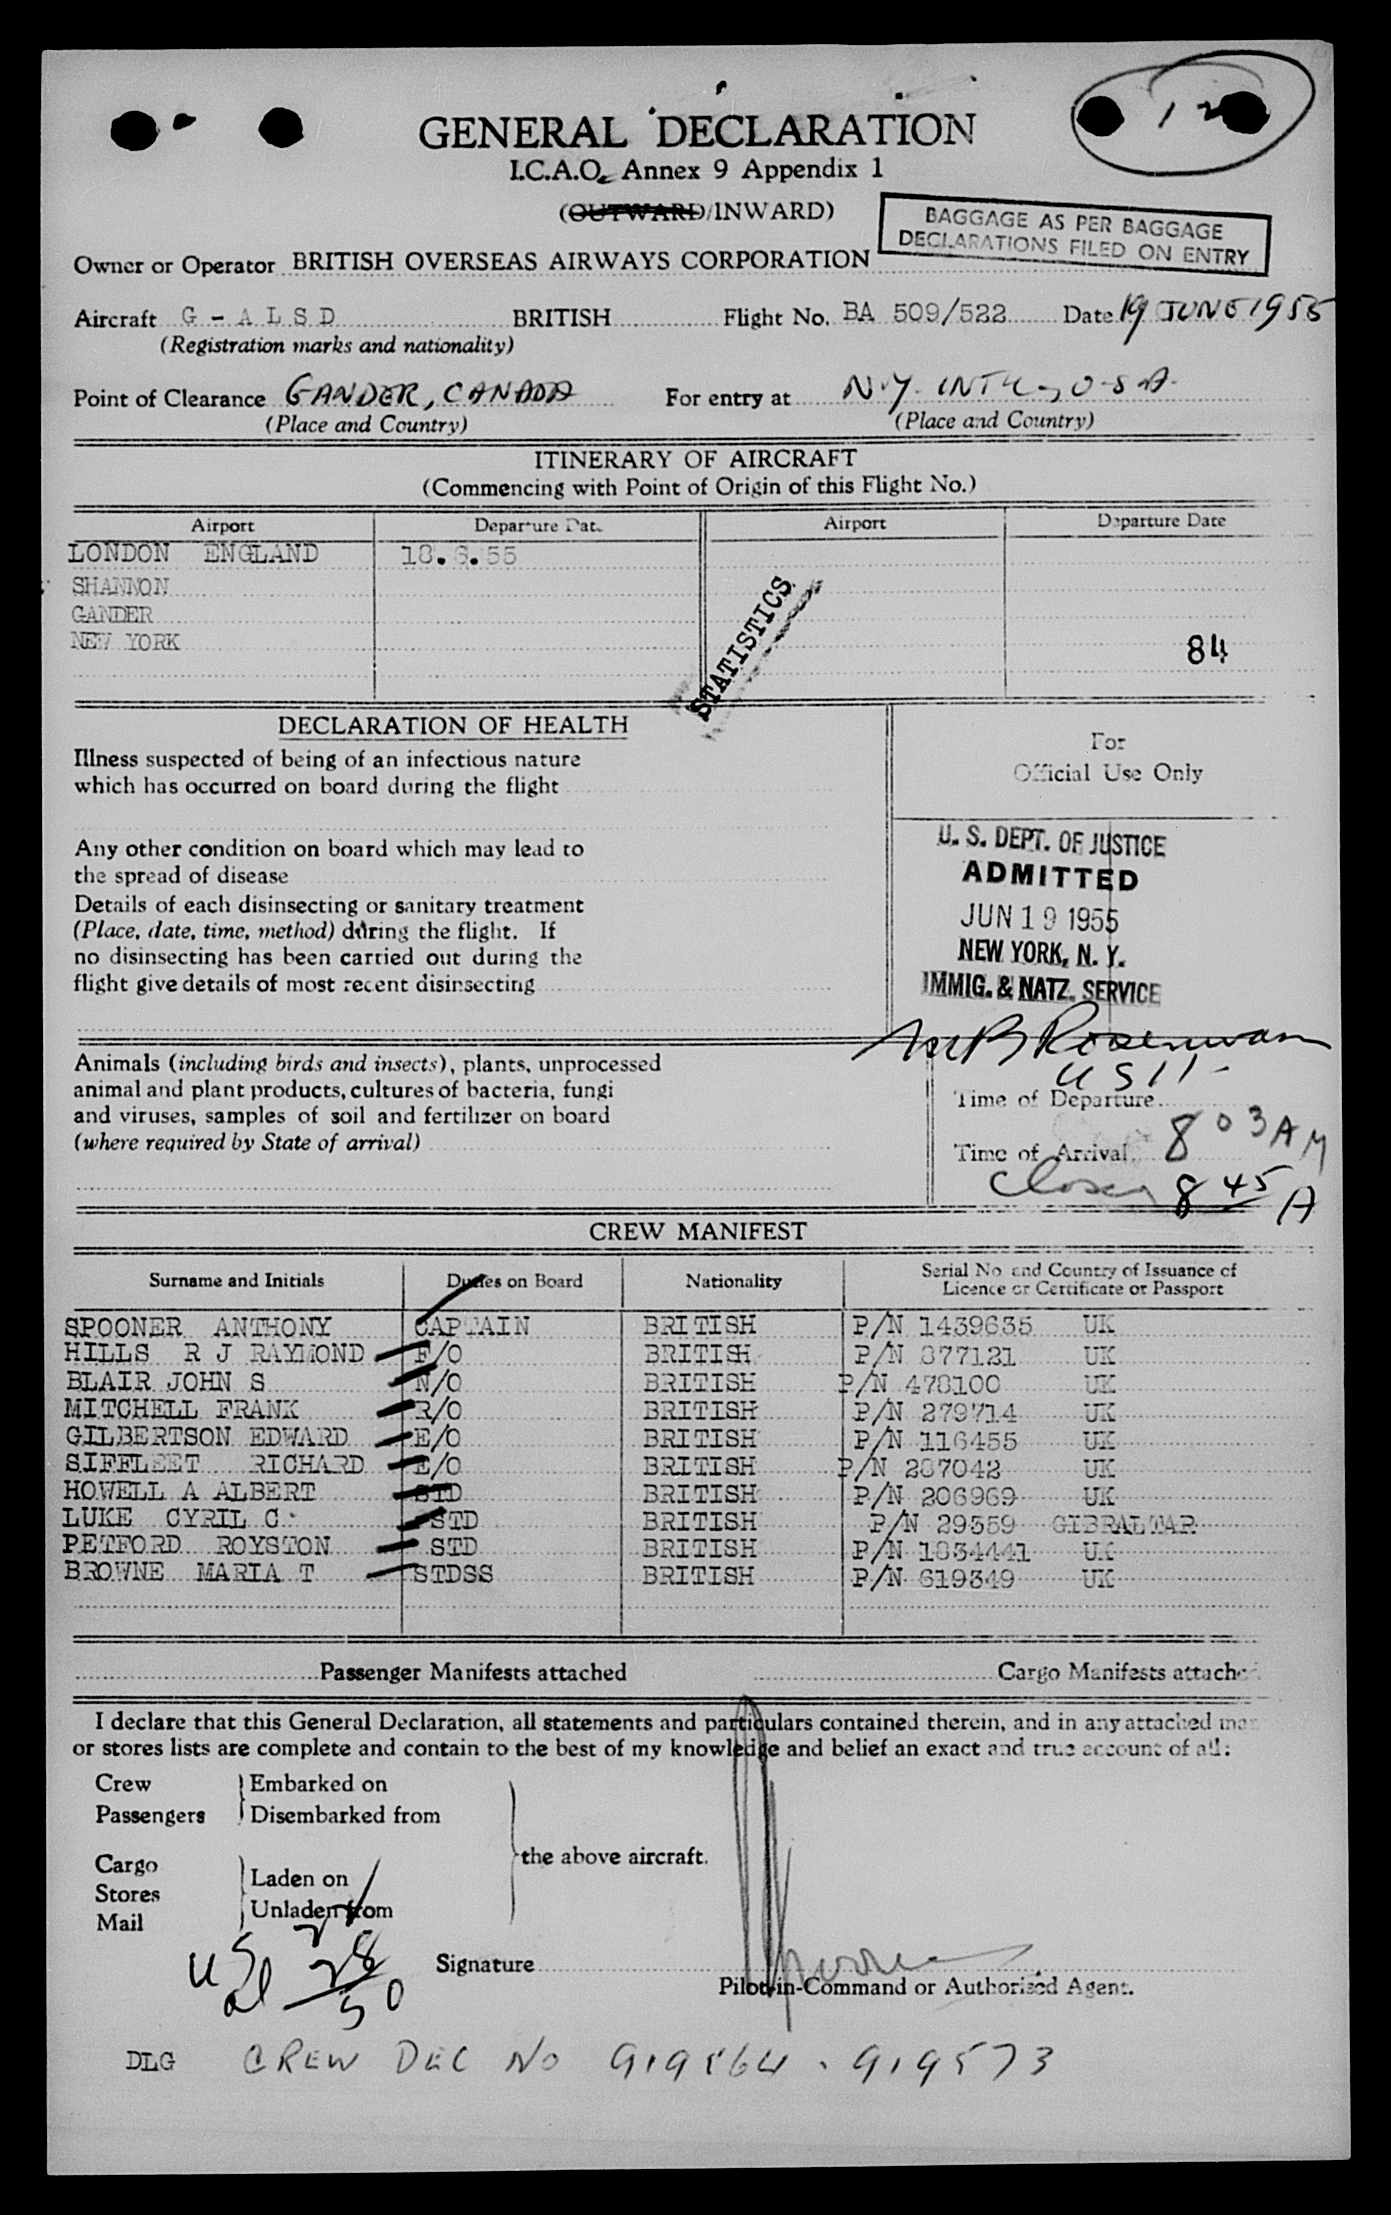 12
GENERAL DECLARATION
I.C.A.O. Annex 9 Appendix 1
(OUTWARD/INWARD)
BAGGAGE AS PER BAGGAGE
DECLARATIONS FILED ON ENTRY
Owner or Operator BRITISH OVERSEAS AIRWAYS CORPORATION
Aircraft G - A L S D BRITISH Flight No. BA 509/522 Date 19 JUNE 1955
(Registration marks and nationality)
Point of Clearance GANDER, CANADA For entry at N.Y. INT'L, U.S.A.
(Place and Country) (Place and Country)
ITINERARY OF AIRCRAFT
(Commencing with Point of Origin of this Flight No.)
Airport Departure Date Airport Departure Date
LONDON ENGLAND 18.6.55
SHANNON
GANDER
NEW YORK
84
STATISTICS
DECLARATION OF HEALTH
Illness suspected of being of an infectious nature
which has occurred on board during the flight
Any other condition on board which may lead to
the spread of disease
Details of each disinsecting or sanitary treatment
(Place, date, time, method) during the flight. If
no disinsecting has been carried out during the
flight give details of most recent disinsecting
For
Official Use Only
U. S. DEPT. OF JUSTICE
ADMITTED
JUN 19 1955
NEW YORK, N. Y.
IMMIG. & NATZ. SERVICE
Animals (including birds and insects), plants, unprocessed
animal and plant products, cultures of bacteria, fungi
and viruses, samples of soil and fertilizer on board
(where required by State of arrival)
Time of Departure
Time of Arrival 8 03 AM
8 45 A
CREW MANIFEST
Surname and Initials Duties on Board Nationality Serial No. and Country of Issuance of
Licence or Certificate or Passport
SPOONER ANTHONY CAPTAIN BRITISH P/N 1439635 UK
HILLS R J RAYMOND F/O BRITISH P/N 877121 UK
BLAIR JOHN S N/O BRITISH P/N 478100 UK
MITCHELL FRANK R/O BRITISH P/N 279714 UK
GILBERTSON EDWARD E/O BRITISH P/N 116455 UK
SIFFLEET RICHARD E/O BRITISH P/N 287042 UK
HOWELL A ALBERT STD BRITISH P/N 206969 UK
LUKE CYRIL C. STD BRITISH P/N 29559 GIBRALTAR
PETFORD ROYSTON STD BRITISH P/N 1834441 UK
BROWNE MARIA T STDSS BRITISH P/N 619349 UK
Passenger Manifests attached Cargo Manifests attached
I declare that this General Declaration, all statements and particulars contained therein, and in any attached
or stores lists are complete and contain to the best of my knowledge and belief an exact and true account of all:
Crew Embarked on
Passengers Disembarked from
the above aircraft.
Cargo Laden on
Stores
Mail Unladen from
Signature
Pilot-in-Command or Authorised Agent.
DLG CREW DEC NO 919564 - 919573